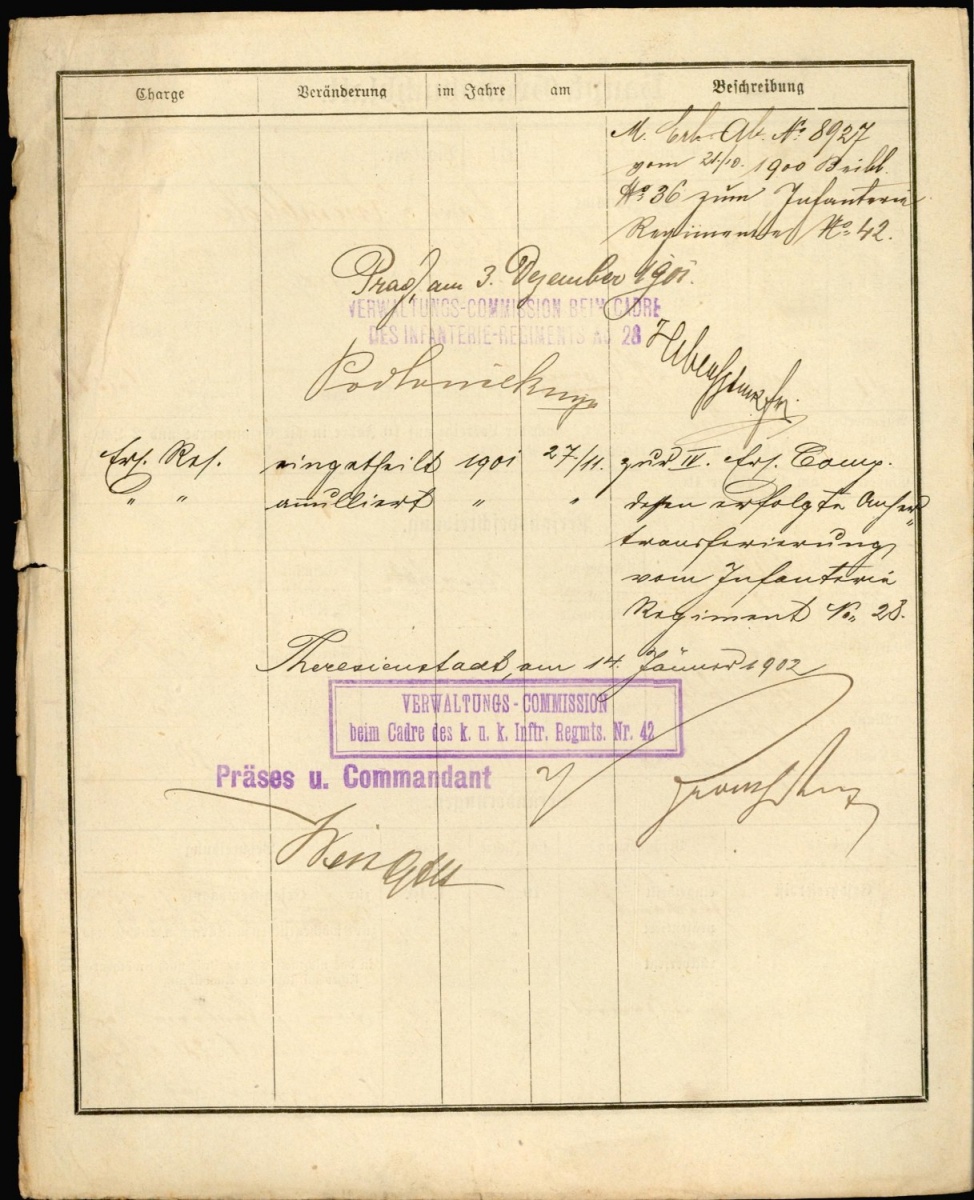 Charge Veränderung im Jahre am Beschreibung
M. Erl. Ab. No 8927
vom 21/10. 1900 Beibl.
No 36 zum Infanterie
Regimente No 42.
Prag, am 3. Dezember 1901.
VERWALTUNGS-COMMISSION BEIM CADRE
DES INFANTERIE-REGIMENTS No 28
Ers. Res. eingetheilt 1901 27./11. zur IV. Ers. Comp.
" " annulliert " " dessen erfolgte Anher„
transferierung
vom Infanterie
Regiment No 28.
Theresienstadt, am 14. Jänner 1902
VERWALTUNGS-COMMISSION
beim Cadre des k. u. k. Inftr. Regmts. Nr. 42
Präses u. Commandant